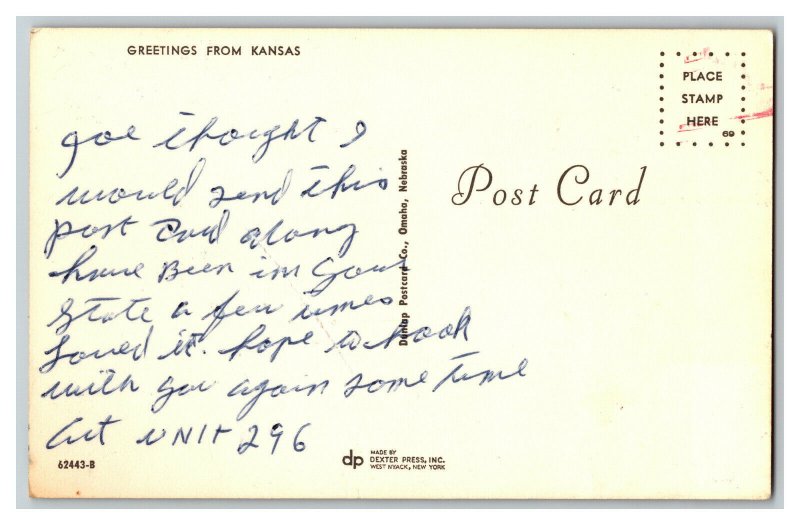 GREETINGS FROM KANSAS
PLACE
STAMP
HERE
69
Joe thought I
would send this
post Card along
have Been in your
State a few times
Loved it. hope to hook
with you again some time
Art UNIT 296
Post Card
Dunlap Postcard Co., Omaha, Nebraska
62443-B
dp
MADE BY
DEXTER PRESS, INC.
WEST NYACK, NEW YORK